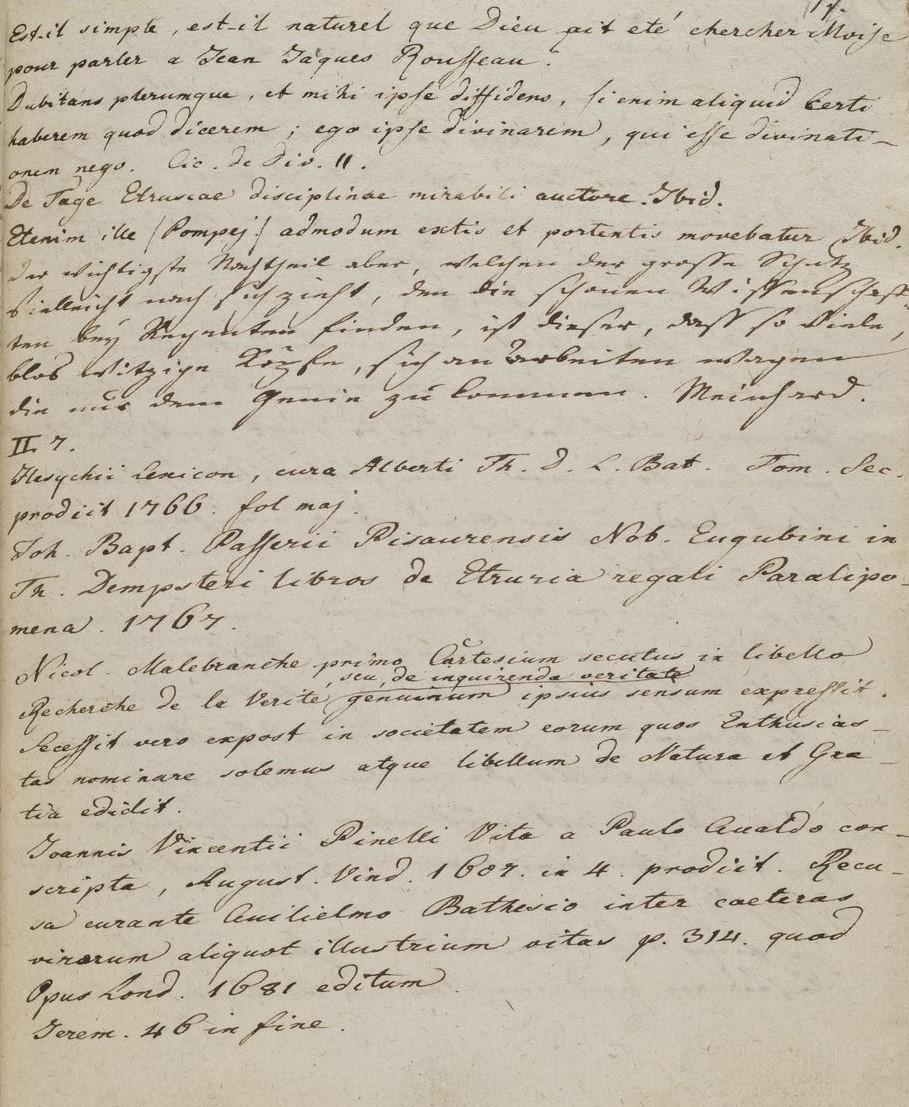 17.
Est-il simple, est-il naturel que Dieu ait eté chercher Moise
pour parler a Jean Jaques Rousseau.
Dubitans plerumque, et mihi ipse diffidens, si enim aliquid certi
haberem quod dicerem; ego ipse divinarem, qui esse divinati-
onem nego. Cic. de Div. II.
De Tage Etruscae disciplinae mirabili auctore. Ibid.
Etenim ille (Pompej.) admodum extis et portentis movebatur Ibid.
Der wichtigste Nachtheil aber, welchen der grosse Schutz
vielleicht nach sich zieht, den die schönen Wissenschaf-
ten bey Regenten finden, ist dieser, dass so viele,
blos witzige Köpfe, sich an Arbeiten wagen
die nur dem Genie zu kommen. Meinhard.
II. 7.
Hesychii Lexicon, cura Alberti Th. D. L. Bat. Tom. Sec.
prodiit 1766. fol maj.
Joh. Bapt. Passerii Pisaurensis Nob. Eugubini in
Th. Dempsteri libros de Etruria regali Paralipo-
mena. 1767.
Nicol. Malebranche primo Cartesium secutus in libello
seu de inquirenda veritate
Recherche de la Verite genuinum ipsius sensum expressit.
Secessit vero expost in societatem eorum quos Enthusias-
tas nominare solemus atque libellum de Natura et Gra-
tia edidit.
Joannis Vincentii Pinelli Vita a Paulo Gualdo con-
scripta, August. Vind. 1607. in 4. prodiit. Recu-
sa curante Guilielmo Bathesio inter caeteras
virorum aliquot illustrium vitas p. 314. quod
Opus Lond. 1681 editum
Jerem. 46 in fine.